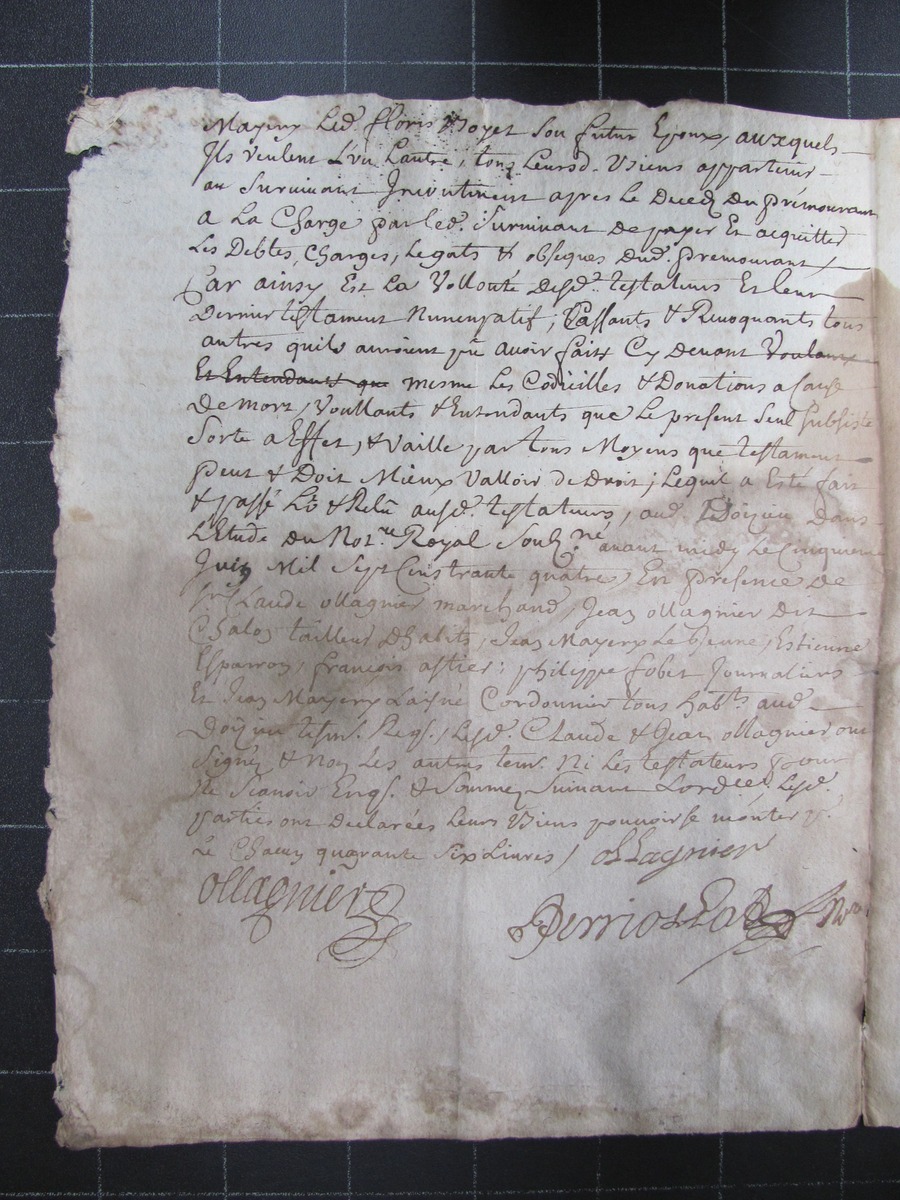 Mayery Led. floris Boyet Son futur Epoux, auxquels
Ils veulent L'un Lautre, tous Leursd. Biens appartenir
au Survivant Incontinent apres Le Deced Du prémourant
A La Charge par led. Survivant de payer Et acquitter
Les Debtes, Charges, Legats & obseques dud. premourant /
Car ainsy Est La Vollonté Desd. testateurs Et leur
Dernier testament Nuncupatif, Cassants & Revoquants tous
autres quils auroient pu avoir faits Cy Devant Voulants
Et Entendants que mesme Les Codicilles & Donations a Cause
De mort, Voullants & Entendants que Le present Seul Subsiste
Sorte a Effet, & Vaille par tous Moyens que testament
peut & Doit Mieux Valloir de Droit; Lequel a Esté fait
& passé Lû & Relû ausd. testateurs, aud. Doizieu Dans
L'Etude Du Not.re Royal Sousg.né avant midy Le Cinquieme
Juin Mil Sept Cens trante quatre, En presence de
Claude ollagnier marchand, Jean ollagnier dit
Chalon tailleur Dhabits, Jean Mayery Le Jeune, Estienne
Esparron, françois astier; philippe fobet Journaliers
Et Jean Mayery Laisné Cordonnier tous hab.ts aud.
Doizieu tesm. Reqs. / Lesd. Claude & Jean ollagnier ont
Signés & Non Les autres tem. Ni Les testateurs pour
Ne Scavoir Enqs. & Sommez Suivant Lord.ce Lesd.
parties ont Declarées Leurs Biens pouvoir se monter p.
Le Chacun quarante Six Livres / ollagnier
ollagnier